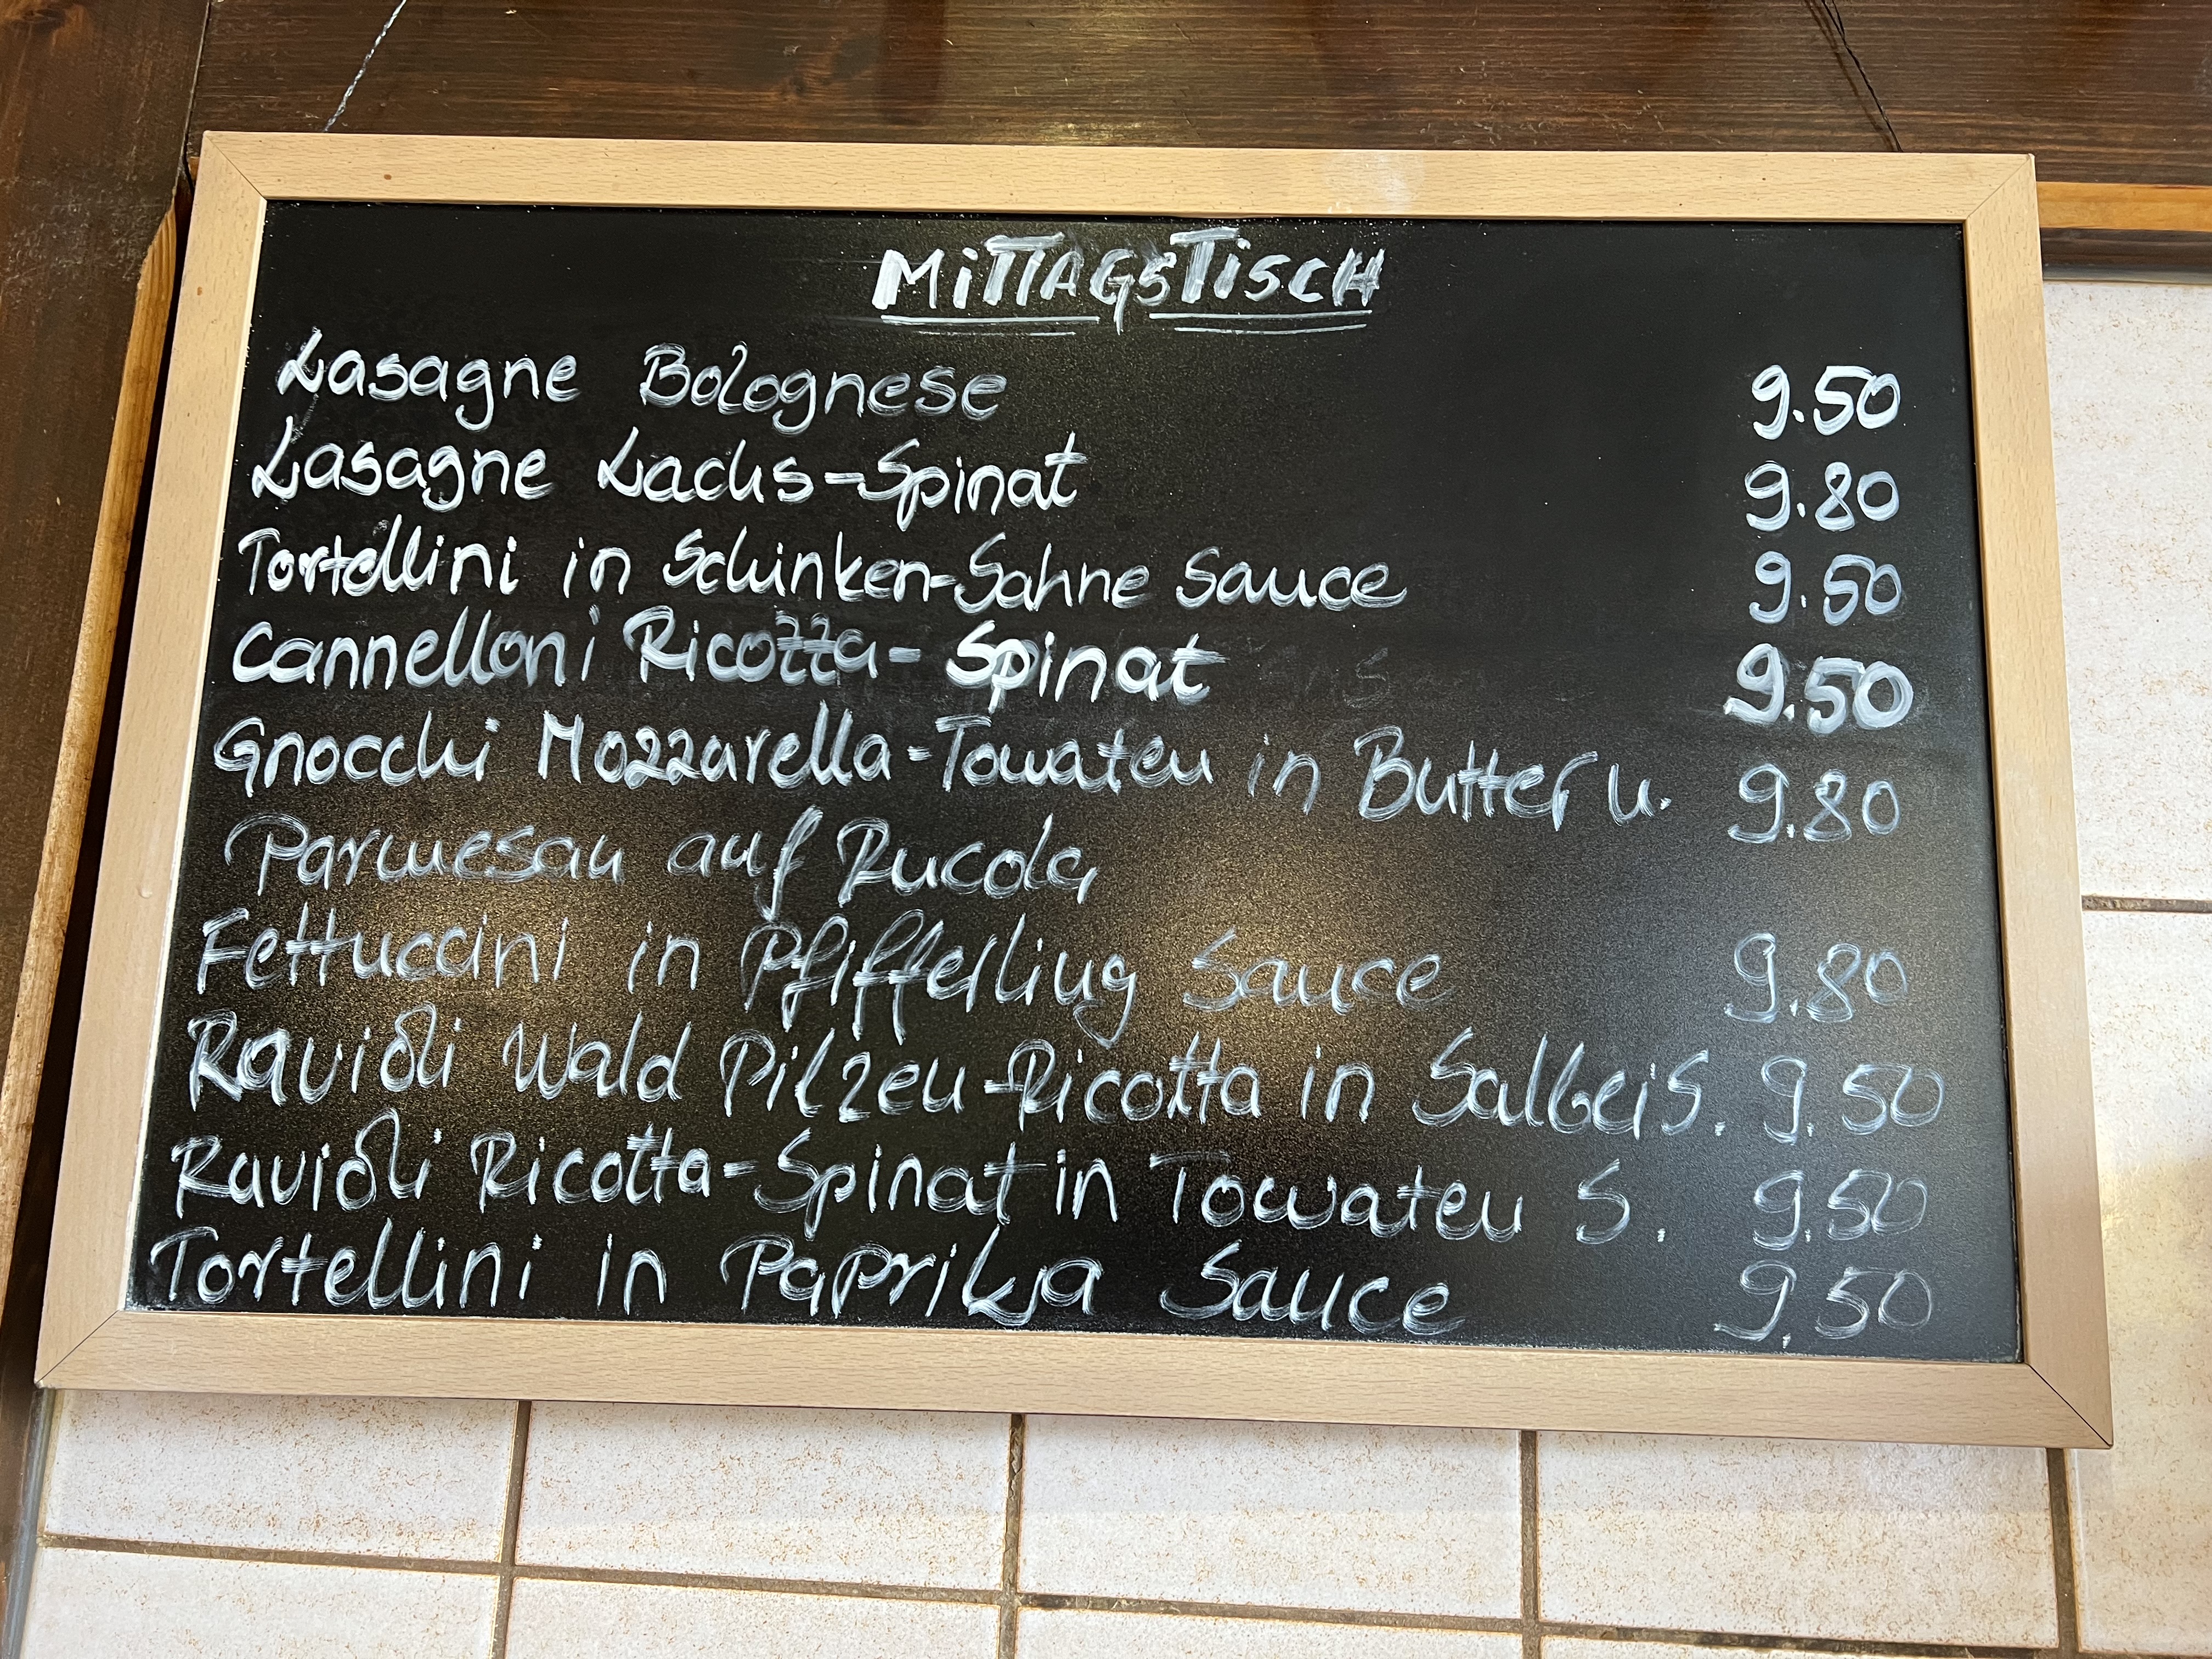 MiTTAGSTiSCH
Lasagne Bolognese 9.50
Lasagne Lachs-Spinat 9.80
Tortellini in Schinken-Sahne Sauce 9.50
Cannelloni Ricotta-Spinat 9.50
Gnocchi Mozzarella-Tomaten in Butter u. 9.80
Parmesan auf Rucola
Fettuccini in Pfifferling Sauce 9.80
Ravioli Wald Pilzen-Ricotta in Salbei S. 9.50
Ravioli Ricotta-Spinat in Tomaten S. 9.50
Tortellini in Paprika Sauce 9.50